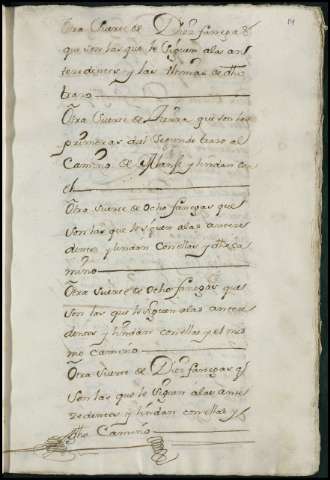 Otra Suerte de Diez fanegas
que son las que se siguen alas an
tecedentes y las ultimas de dho
trazo
Otra Suerte de Tierra que son las
primeras del Segundo trazo al
Camino de y lindan con
el
Otra Suerte de Ocho fanegas que
son las que se siguen alas antece
dentes y lindan con ellas y dho Ca
mino
Otra Suerte de Ocho fanegas que
son las que se siguen alas antece
dentes y lindan con ellas y el mis
mo Camino
Otra Suerte de Diez fanegas q
son las que se siguen alas ante
zedentes y lindan con ellas y
dho Camino